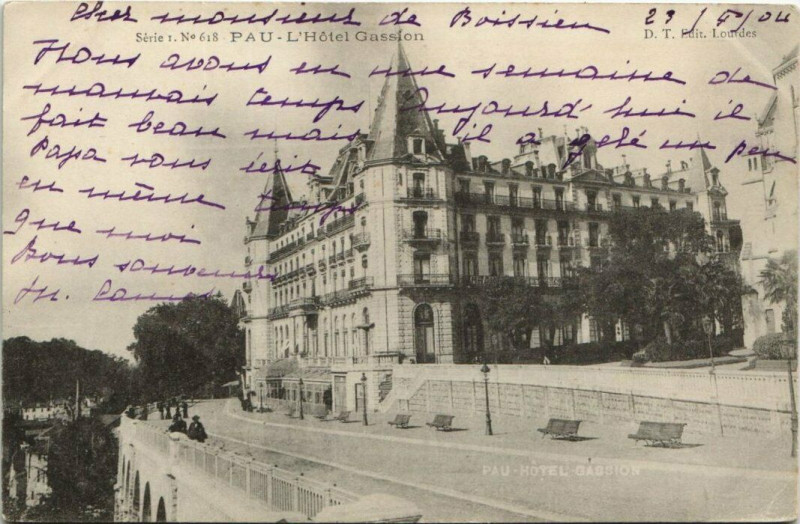 Cher monsieur de Boissieu 29/5/04
Série 1. No 618 PAU - L'Hôtel Gassion D. T. Edit. Lourdes
Nous avons eu une semaine de
mauvais temps Aujourd'hui il
fait beau mais il a gelé un peu
Papa vous écrit
en même temps
que moi
Bons souvenirs
PAU - HÔTEL GASSION